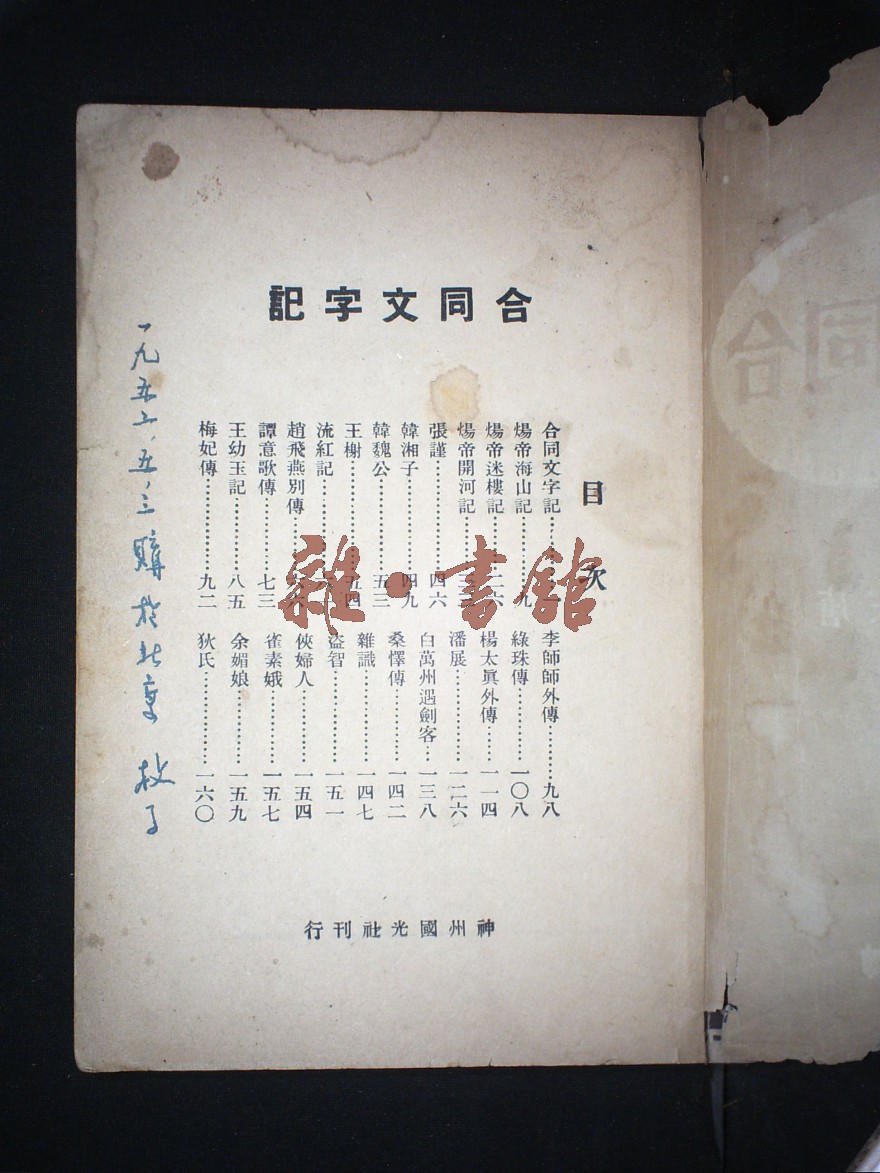 合同文字記
目次
合同文字記
煬帝海山記 九
煬帝迷樓記 二六
煬帝開河記
張謹 四六
韓湘子 四九
韓魏公 五三
王榭 五四
流紅記
趙飛燕別傳
譚意歌傳 七三
王幼玉記 八五
梅妃傳 九二
李師師外傳 九八
綠珠傳 一〇八
楊太眞外傳 一一四
潘展 一二六
白萬州遇劍客 一三八
桑懌傳 一四二
雜識 一四七
盜智 一五一
俠婦人 一五四
崔素娥 一五七
余媚娘 一五九
狄氏 一六〇
神州國光社刊行
一九五二、五、三 購於北京
雜·書館
同合